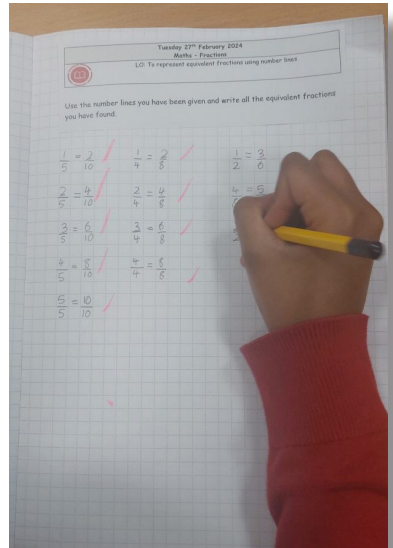 Tuesday 27th February 2024
Maths – Fractions
LO: To represent equivalent fractions using number lines
Use the number lines you have been given and write all the equivalent fractions
you have found.
1/5 = 2/10 1/4 = 2/8 1/2 = 3/6
2/5 = 4/10 2/4 = 4/8 4 = 5
3/5 = 6/10 3/4 = 6/8
4/5 = 8/10 4/4 = 8/8
5/5 = 10/10